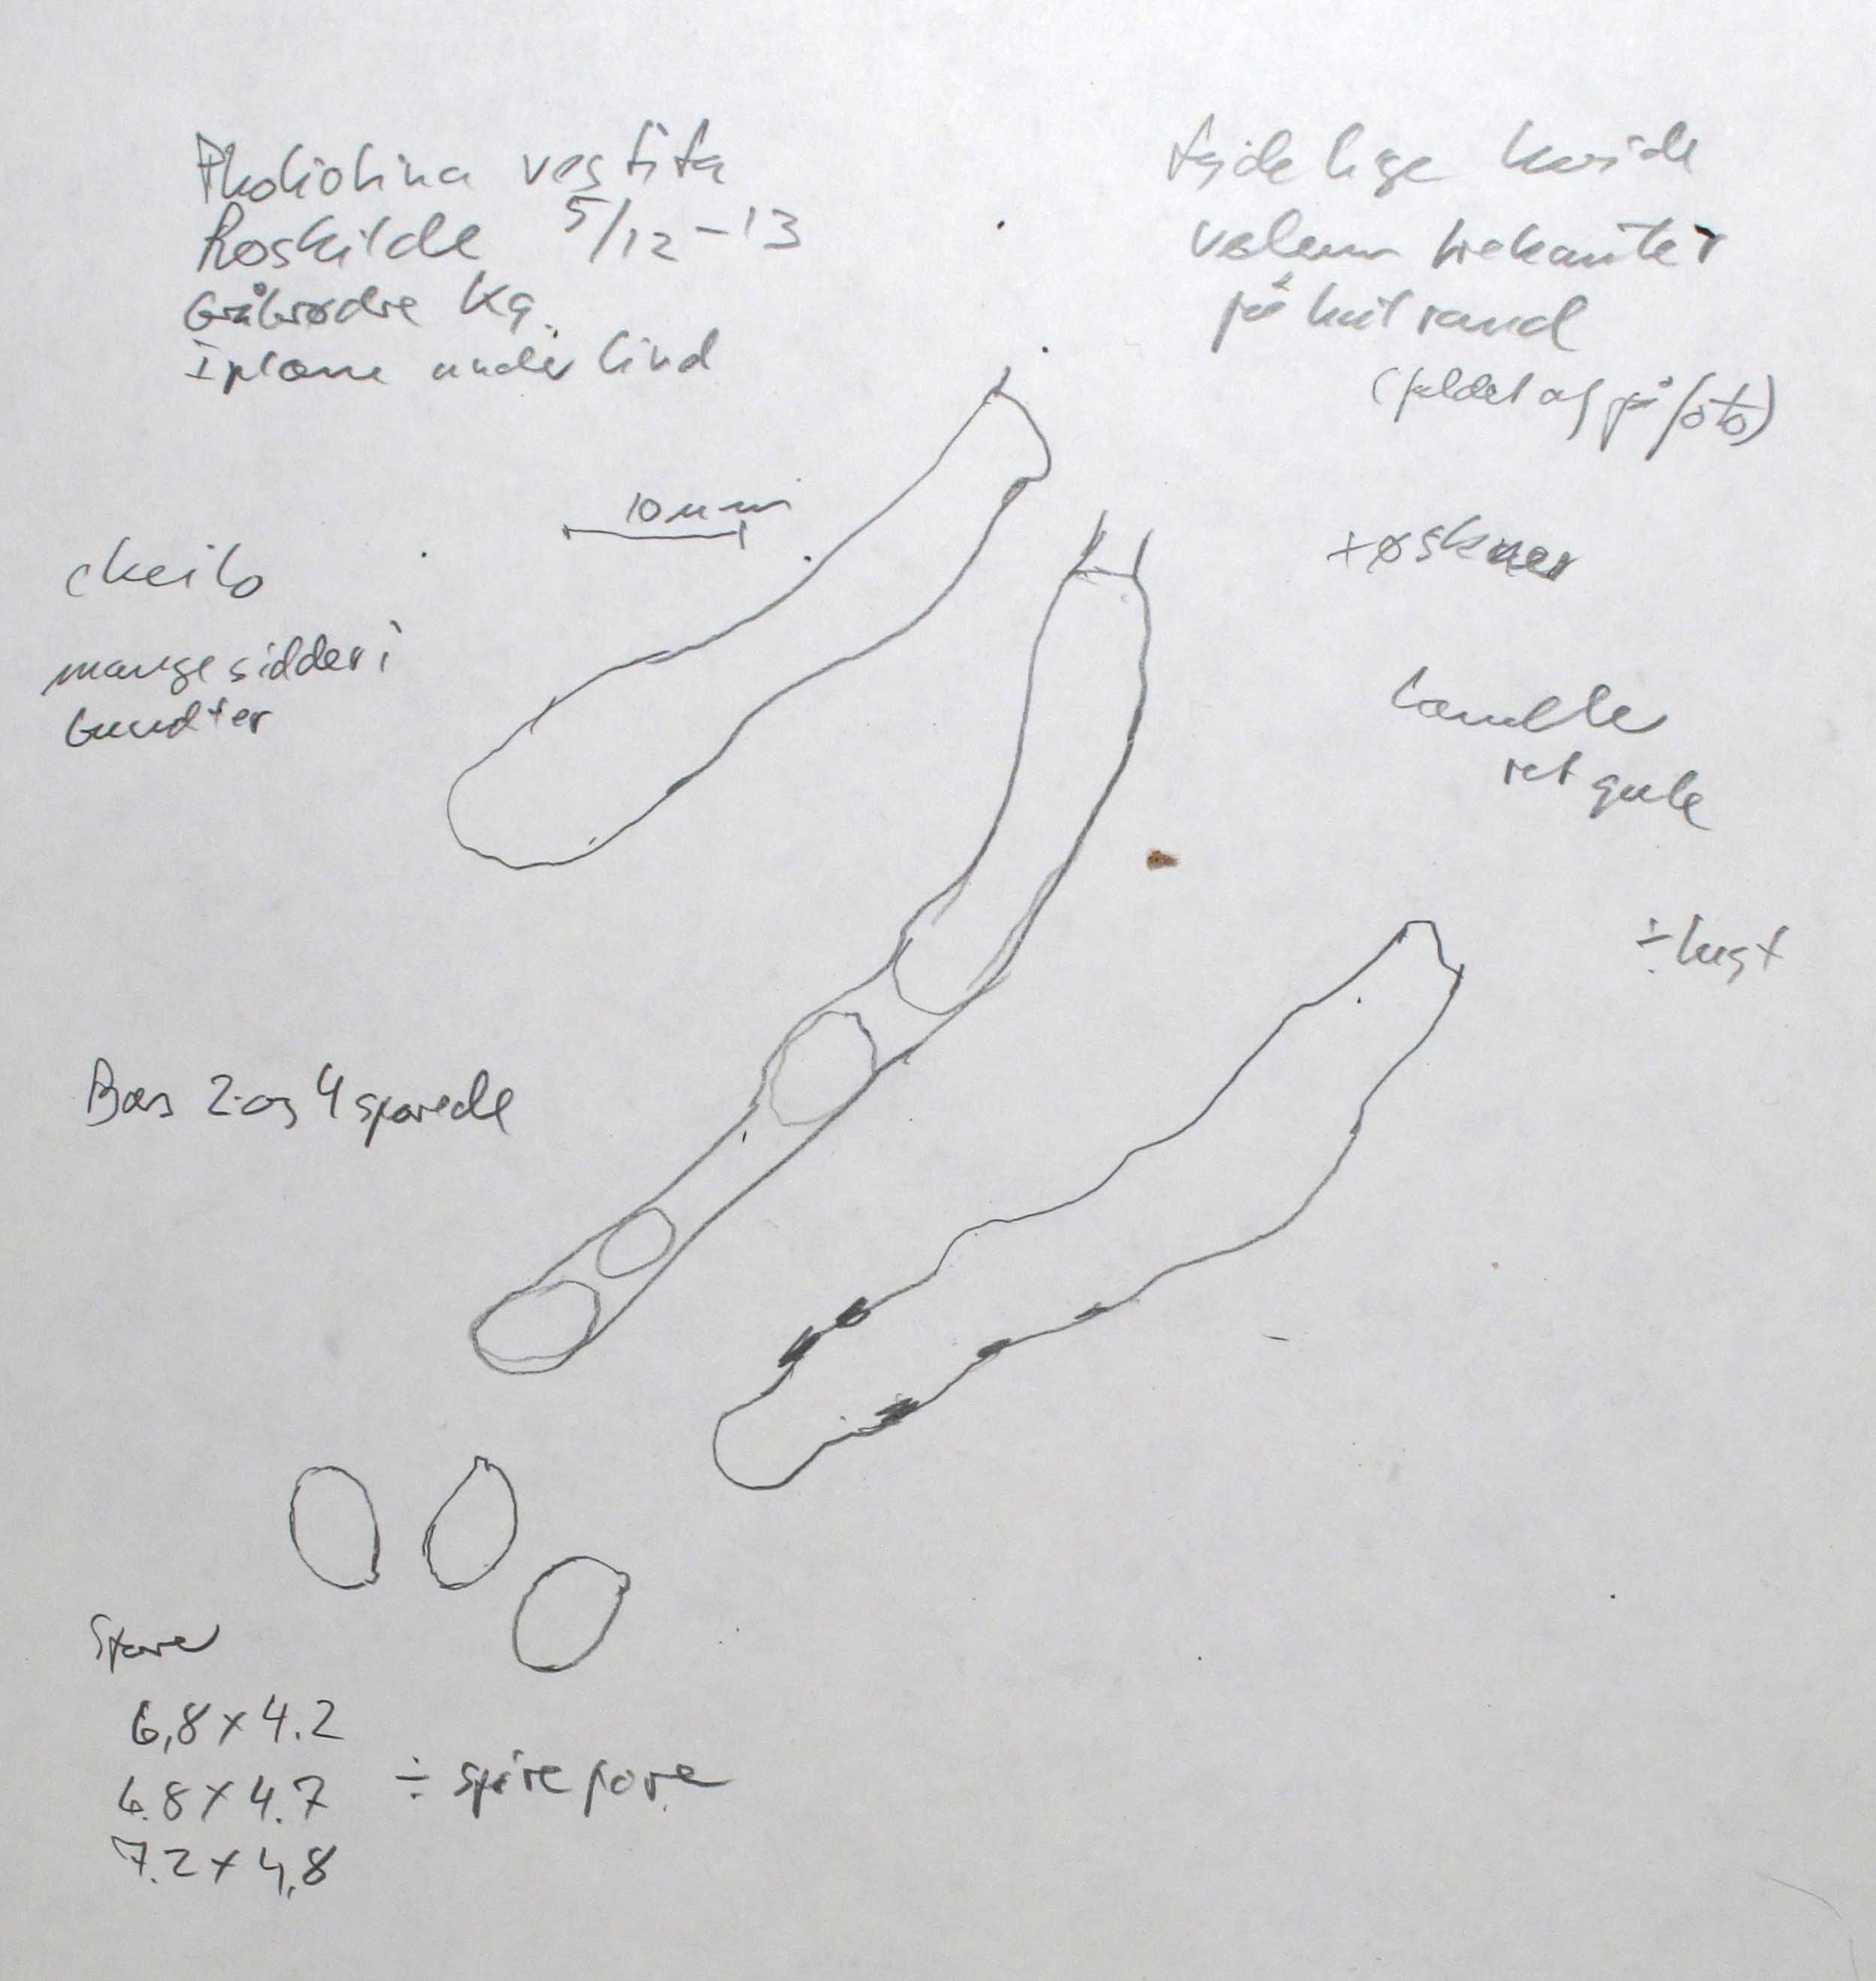 Pholiotina vestita
Roskilde 5/12-13
Gråbrødre Kg.
I plæne under lind
tydelige hvide
velum trekanter
på hat rand
(faldet af på foto)
10 mm
+ øskner
cheilo
mange sidder i
bundter
Lamelle
ret gule
÷ lugt
Bas 2-og 4 sporede
Spore
6,8 x 4.2
6.8 x 4.7 ÷ spirepore
7.2 x 4,8